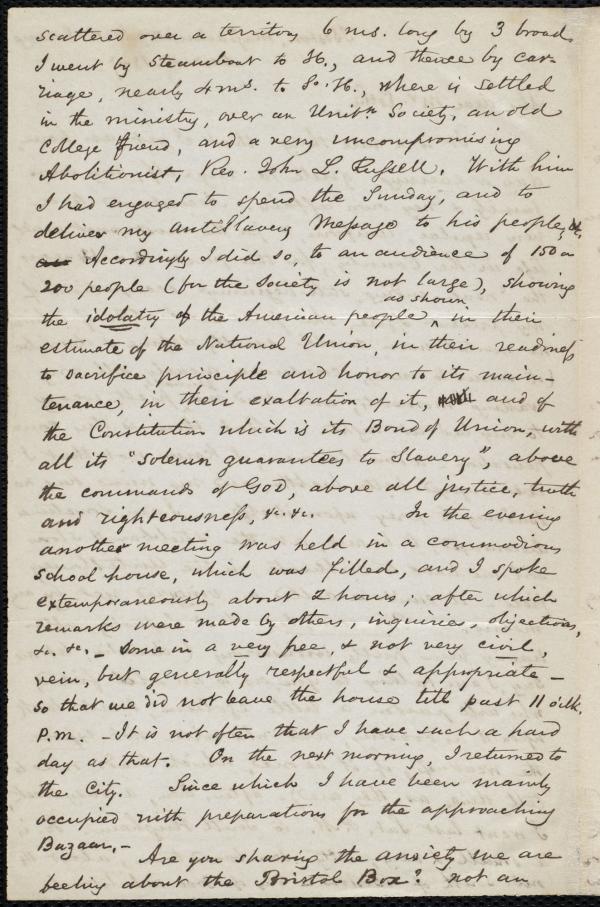 scattered over a territory 6 ms. long by 3 broad.
I went by Steamboat to H., and thence by car-
riage, nearly 4 ms. to So. H., where is settled
in the ministry, over an Unitn. Society, an old
College friend, and a very uncompromising
Abolitionist, Rev. John L. Russell. With him
I had engaged to spend the Sunday, and to
deliver my antiSlavery Message to his people,
Accordingly I did so, to an audience of 150 a
200 people (for the Society is not large), showing
the idolatry of the American people, as shown in their
estimate of the National Union, in their readiness
to sacrifice principle and honor to its main-
tenance, in their exaltation of it, and of
the Constitution which is its Bond of Union, with
all its "solemn guarantees to Slavery", above
the commands of God, above all justice, truth
and righteousness, &c. &c. In the evening
another meeting was held in a commodious
school house, which was filled, and I spoke
extemporaneously about 2 hours; after which
remarks were made by others, inquiries, objections,
&c. &c. – Some in a very free, & not very civil,
vein, but generally respectful & appropriate –
so that we did not leave the house till past 11 o'clk.
P.M. – It is not often that I have such a hard
day as that. On the next morning, I returned to
the City. Since which I have been mainly
occupied with preparations for the approaching
Bazaar. –
Are you sharing the anxiety we are
feeling about the Bristol Box? not an